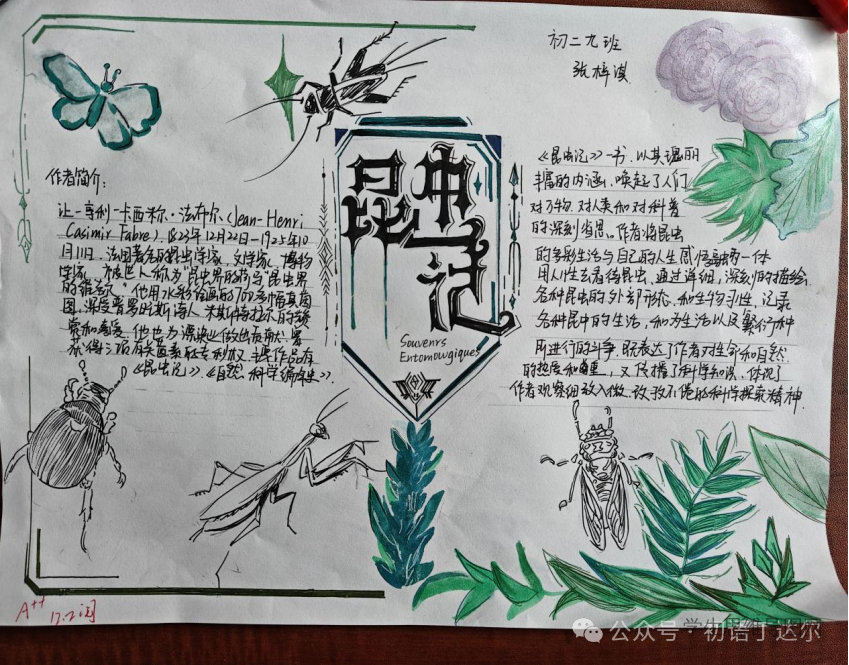 初二九班
张梓淇
昆虫记
Souvenrs
Entomowgiques
作者简介：
让-亨利-卡西米尔·法布尔（Jean-Henri
Casimir Fabre），1823年12月22日-1925年10
月11日，法国著名的昆虫学家，文学家，博物
学家，被世人称为"昆虫界的荷马""昆虫界
的维吉尔"他用水彩绘画的700多幅真菌
图，深受普罗旺斯诗人米斯特拉尔的赞
赏和喜爱。他也为漂染业做出贡献，曾
获得三项有关茜素的专利权，主要作品有
《昆虫记》、《自然科学编年史》.
《昆虫记》一书，以其瑰丽
丰富的内涵，唤起了人们
对万物、对人类和对科普
的深刻省思。作者将昆虫
的多彩生活与自己的人生感悟融为一体
用人性去看待昆虫，通过详细，深刻的描绘
各种昆虫的外部形态，和生物习性，记录
各种昆中的生活，和为生活以及繁衍种
所进行的斗争，既表达了作者对生命和自然
的热爱和尊重，又传播了科学知识，体现了
作者观察细致入微、孜孜不倦的科学探索精神.
A++
12.2阅
公众号·初语丁达尔